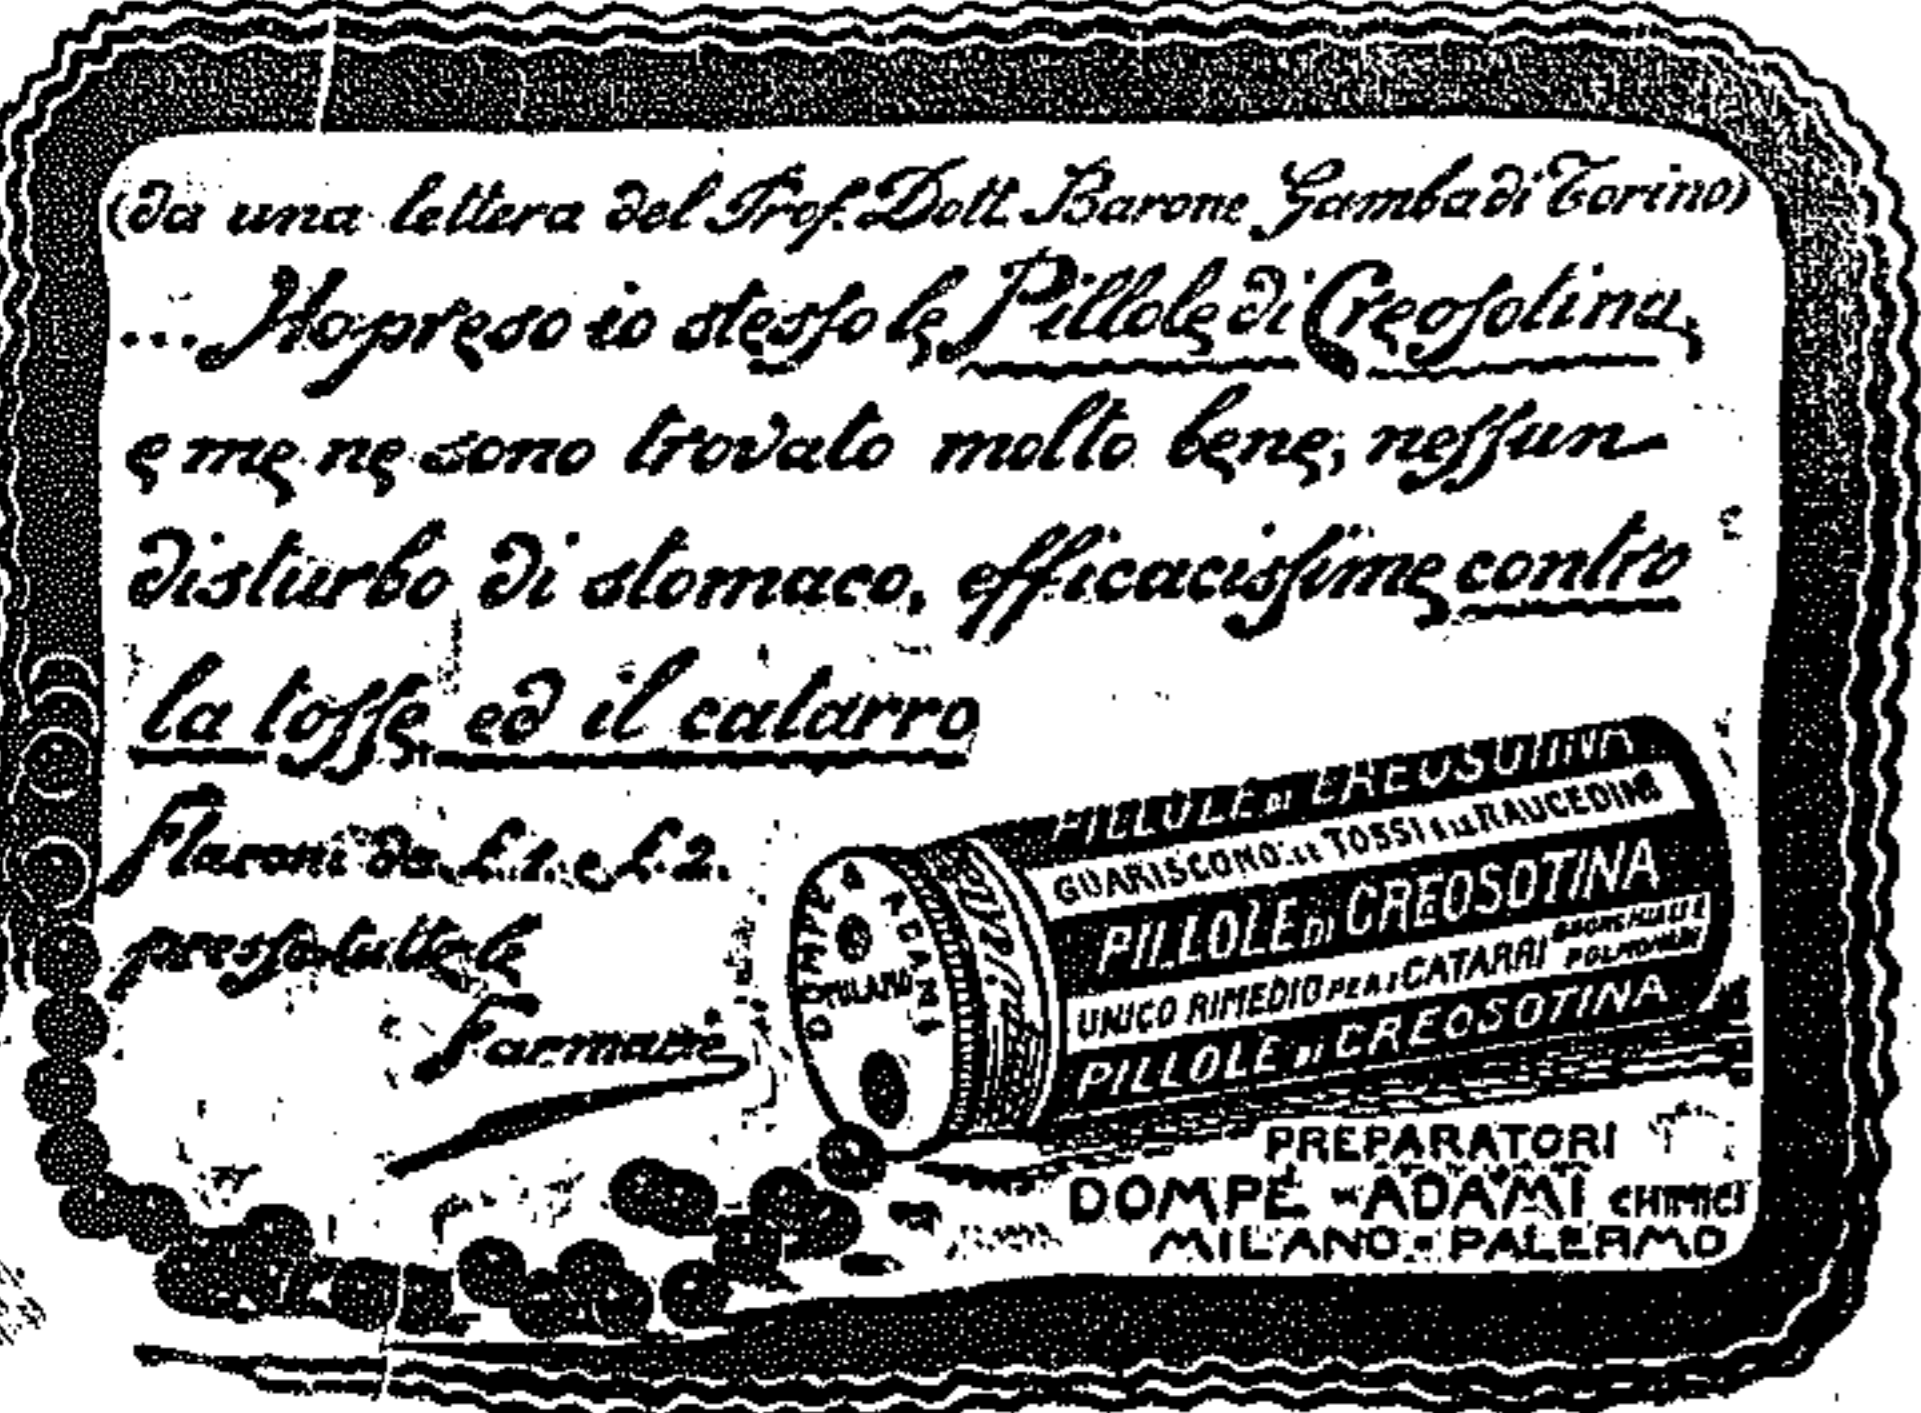 (da una lettera del Prof. Dott. Barone Gamba di Torino)
... Ho preso io stesso le Pillole di Creosotina,
e me ne sono trovato molto bene; nessun
disturbo di stomaco, efficacissime contro
la tosse ed il catarro
Flaconi da £. 1. e £. 2.
presso tutte le
Farmacie
PILLOLE DI CREOSOTINA
GUARISCONO LE TOSSI E LE RAUCEDINI
PILLOLE DI CREOSOTINA
UNICO RIMEDIO PER I CATARRI BRONCHIALI E POLMONARI
PILLOLE DI CREOSOTINA
DOMPÉ & ADAMI
MILANO
PREPARATORI
DOMPÉ - ADAMI CHIMICI
MILANO - PALERMO